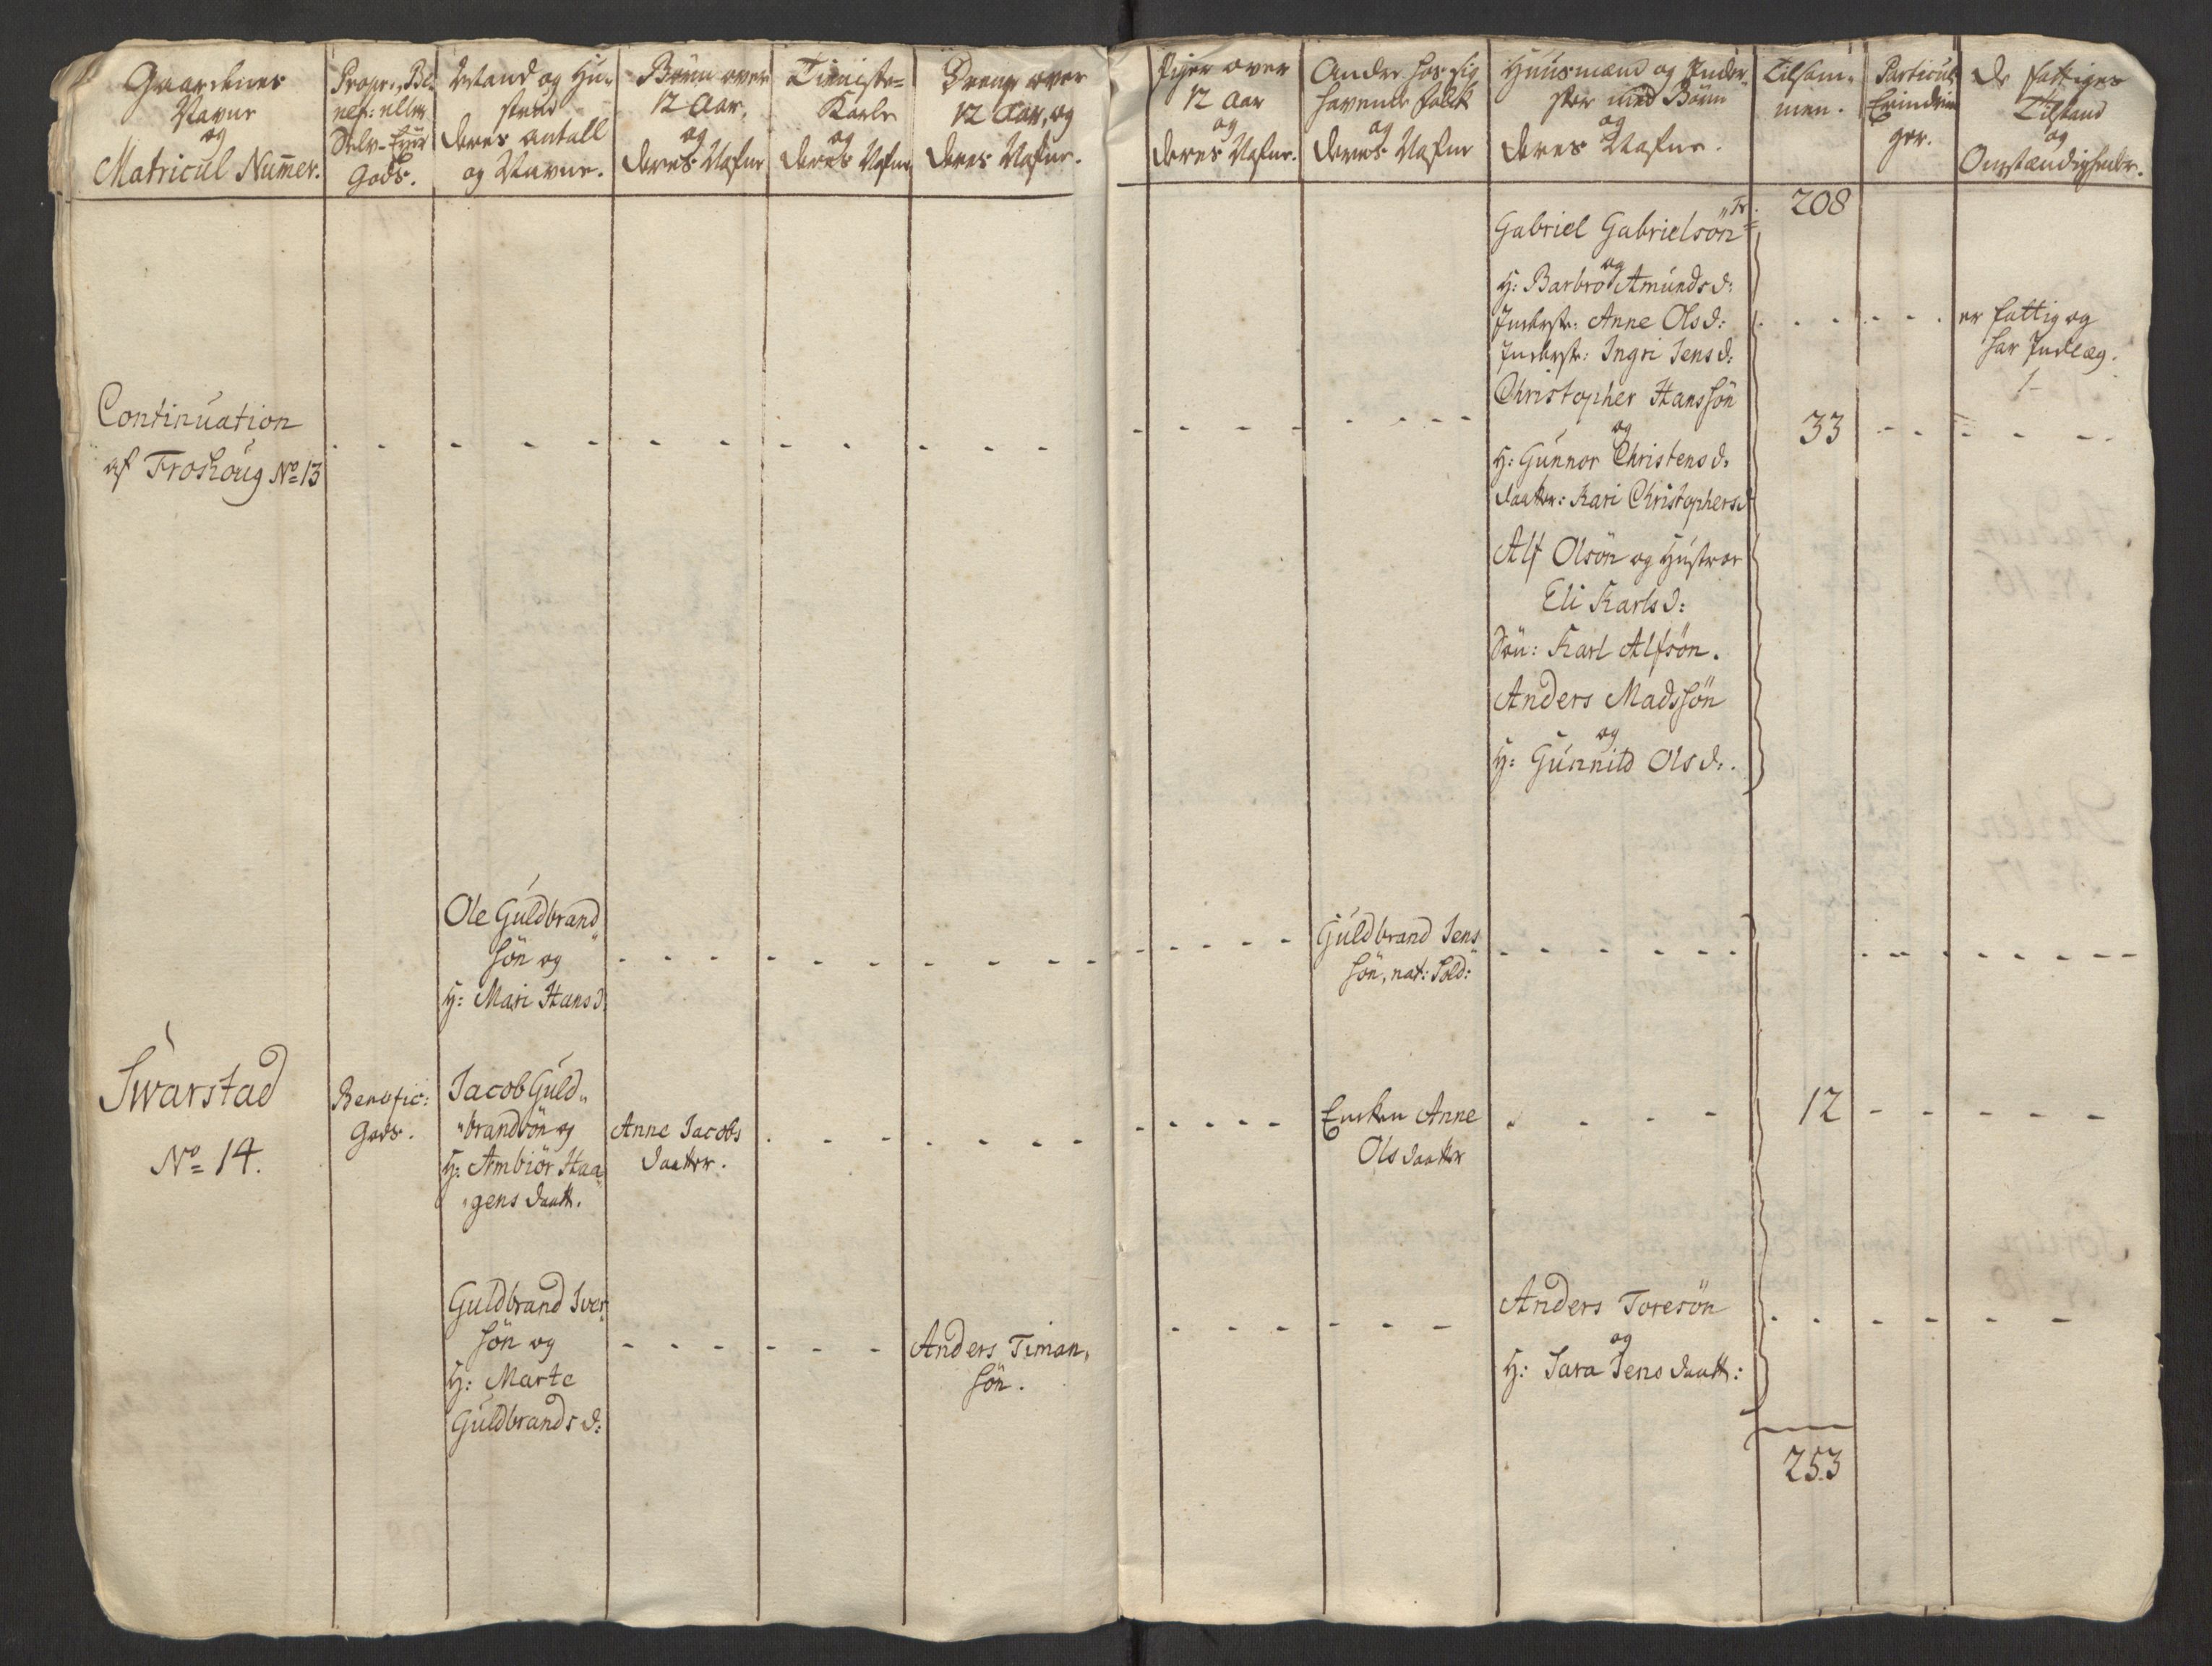 Gaardenes
Navne
og
Matricul Num̄er.
Propr., Be-
nef: eller
Selv-Eyer
Gods.
Mand og Hu-
strue
deres antall
og Navne.
Børn over
12 Aar,
og
deres Nafne
Tieniste-
Karle
og
deres Nafne
Drenge over
12 Aar, og
deres Nafne.
Piger over
12 Aar
og
deres Nafne.
Andre hos sig
havende folck
og
deres Nafne
Huusmænd og Inder-
ster med Børn
og
deres Nafne.
Tilsam-
men.
Particul.
Erindrin
ger.
De fattiges
Tilstand
og
Omstændigheder.
Tr. 208
Gabriel Gabrielsön
og
H: Barbro Amunds d:
Inderst: Anne Ols d:
er fattig og
har Indlæg.
1-
Inderst: Ingri Jens d:
Christopher Hanssön
Continuation
af Froshoug No 13
33
og
H: Gunnor Christens d:
daatter: Kari Christophers d
Alf Olsön og Hustroe
Eli Karls d:
Sön: Karl Alfsön.
Anders Madssön
og
H: Gunnild Ols d:.
Ole Guldbrand
sön og
H: Mari Hans d.
Guldbrand Jens
sön, nat: Sold:
Swarstad
No 14.
Benefic:
Gods.
Jacob Guld„
„brandsön og
H: Ambiör Haa
„gens daatt.
Anne Jacobs
daatter.
Encken Anne
Ols daatter
12
Guldbrand Iver
sön og
H: Marte
Guldbrands d:
Anders Timan„
sön.
Anders Toresön
og
H: Sara Jens daatt:
253